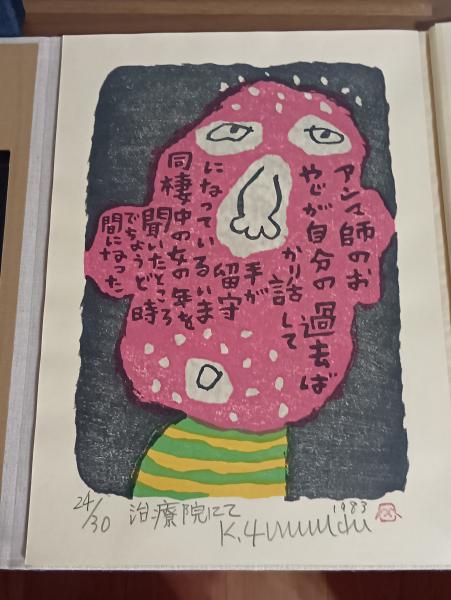 アンマ師のお
やじが自分の過去ば
かり話して
手が
留守
になっているいま
同棲中の女の年を
聞いたところ
でちょうど時
間になった
24/30 治療院にて K. 1983